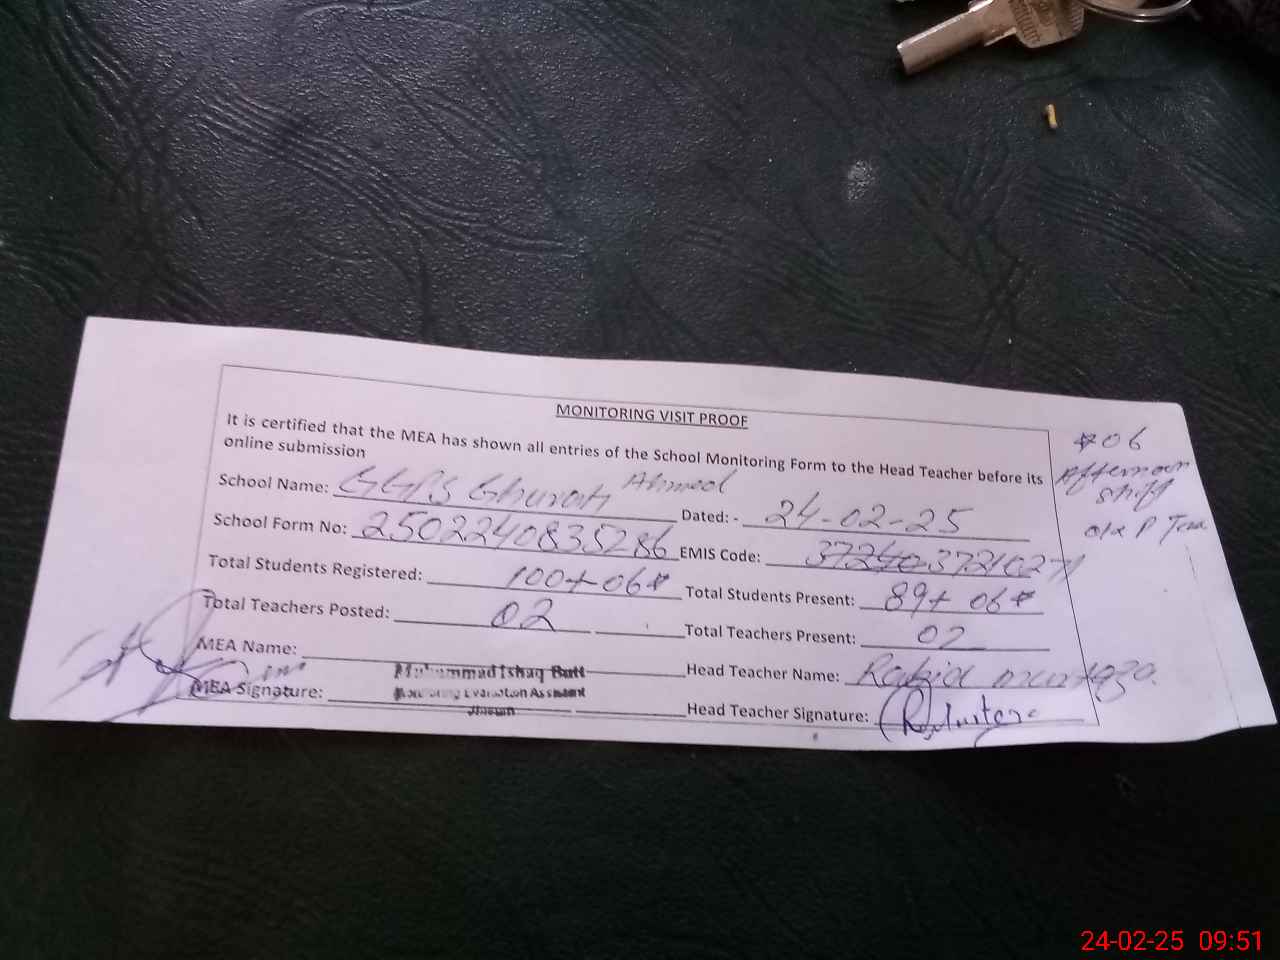 MONITORING VISIT PROOF
It is certified that the MEA has shown all entries of the School Monitoring Form to the Head Teacher before its
online submission
School Name: GGPS Ahmed Dated: - 24-02-25
School Form No: 2502240835286 EMIS Code: 37210271
Total Students Registered: 100+06* Total Students Present: 89+06*
Total Teachers Posted: 02 Total Teachers Present: 02
MEA Name: Muhammad Ishaq Butt Head Teacher Name: Rabia murtaza
Monitoring Evaluation Assistant
MEA Signature: Jhelum Head Teacher Signature:
*06
Afternoon
24-02-25 09:51